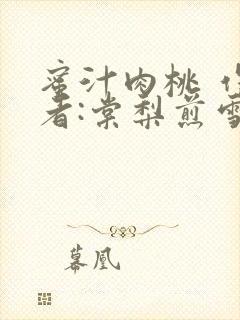 蜜汁肉桃 作
者:棠梨煎雪
幕凰